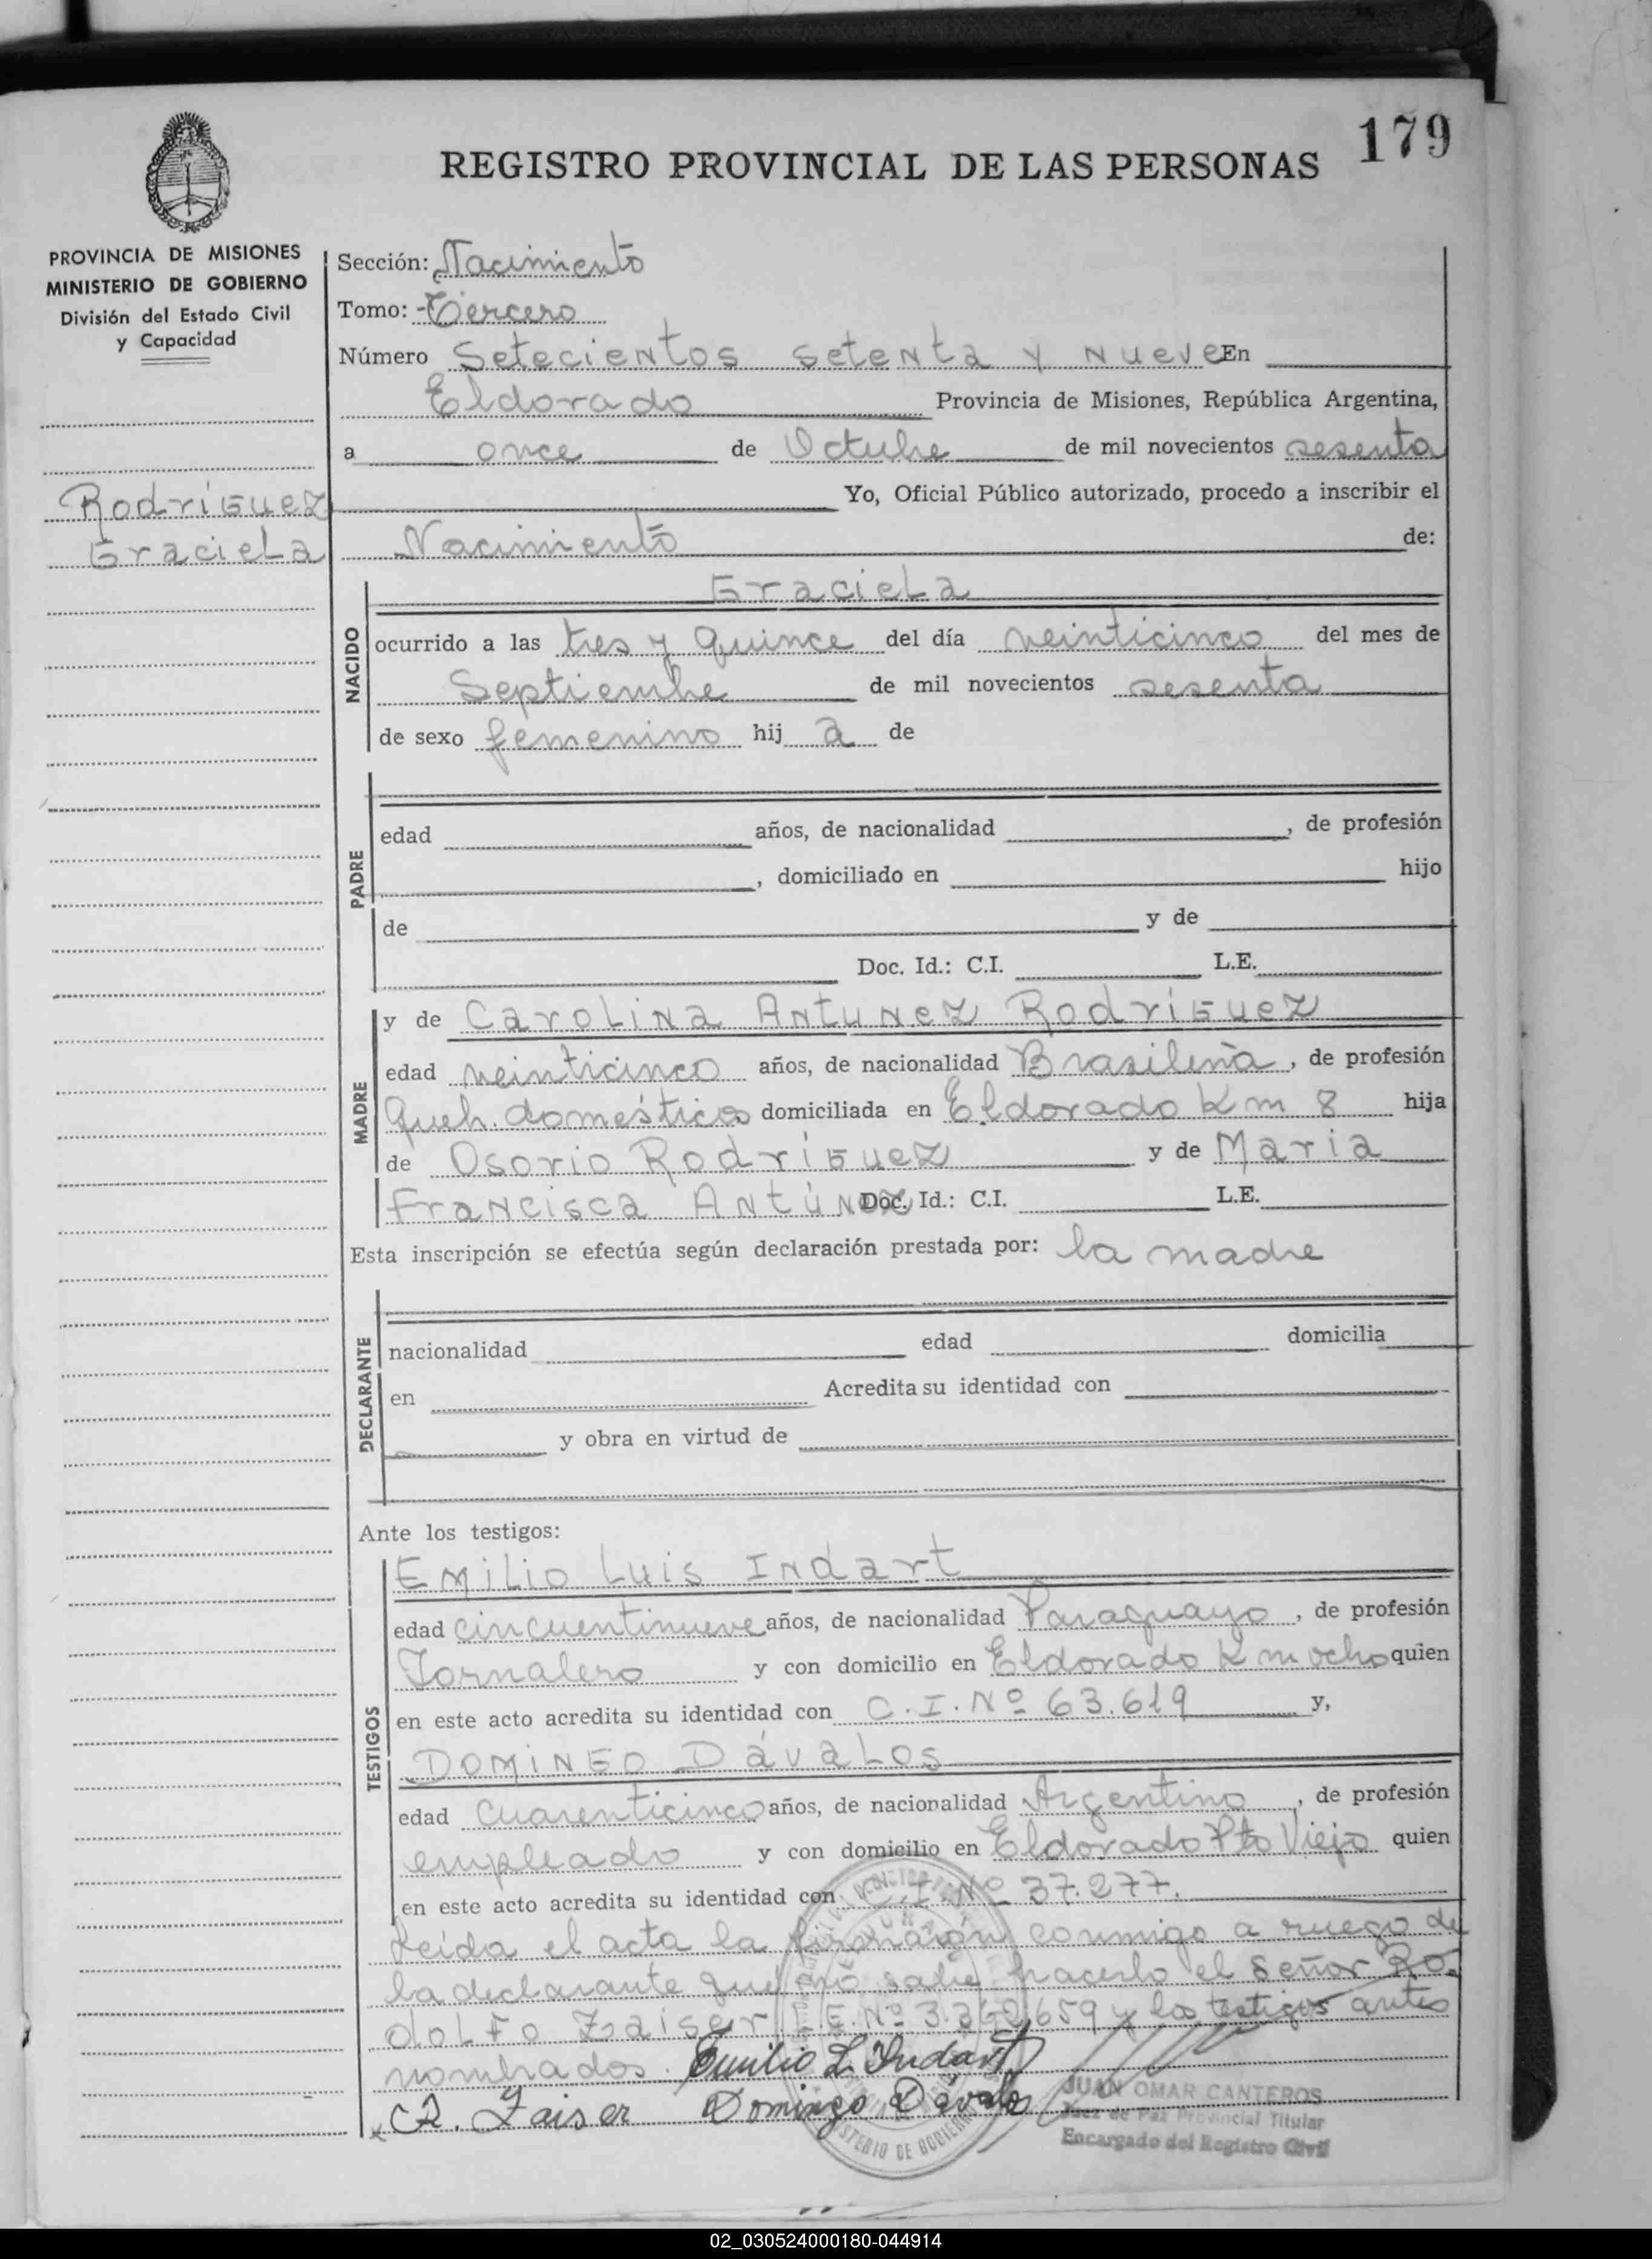 179
REGISTRO PROVINCIAL DE LAS PERSONAS
PROVINCIA DE MISIONES
MINISTERIO DE GOBIERNO
División del Estado Civil
y Capacidad
Rodríguez
Graciela
Sección: Nacimiento
Tomo: Tercero
Número Setecientos setenta y nueve En
Eldorado Provincia de Misiones, República Argentina,
a once de Octubre de mil novecientos sesenta
Yo, Oficial Público autorizado, procedo a inscribir el
Nacimiento de:
NACIDO
Graciela
ocurrido a las tres y quince del día veinticinco del mes de
Septiembre de mil novecientos sesenta
de sexo femenino hij a de
PADRE
edad años, de nacionalidad , de profesión
, domiciliado en hijo
de y de
Doc. Id.: C.I. L.E.
MADRE
y de Carolina Antunez Rodríguez
edad veinticinco años, de nacionalidad Brasileña, de profesión
Queh. domésticos domiciliada en Eldorado Km 8 hija
de Osorio Rodríguez y de Maria
Francisca Antúnez Doc. Id.: C.I. L.E.
Esta inscripción se efectúa según declaración prestada por: la madre
DECLARANTE
nacionalidad edad domicilia
en Acredita su identidad con
y obra en virtud de
Ante los testigos:
TESTIGOS
Emilio Luis Indart
edad cincuentinueve años, de nacionalidad Paraguayo, de profesión
Jornalero y con domicilio en Eldorado Km ocho quien
en este acto acredita su identidad con C.I. Nº 63.619 y,
Domingo Dávalos
edad cuarenticinco años, de nacionalidad Argentino, de profesión
empleado y con domicilio en Eldorado Pto Viejo quien
en este acto acredita su identidad con C.I. Nº 37.277.
Leída el acta la firmarán conmigo a ruego de
la declarante que no sabe hacerlo el señor Ro-
dolfo Zaiser L.E. Nº 3.262.659 y los testigos antes
nombrados. Emilio L. Indart
R. Zaiser Domingo Dávalos
JUAN OMAR CANTEROS
Juez de Paz Provincial Titular
Encargado del Registro Civil
02_030524000180-044914